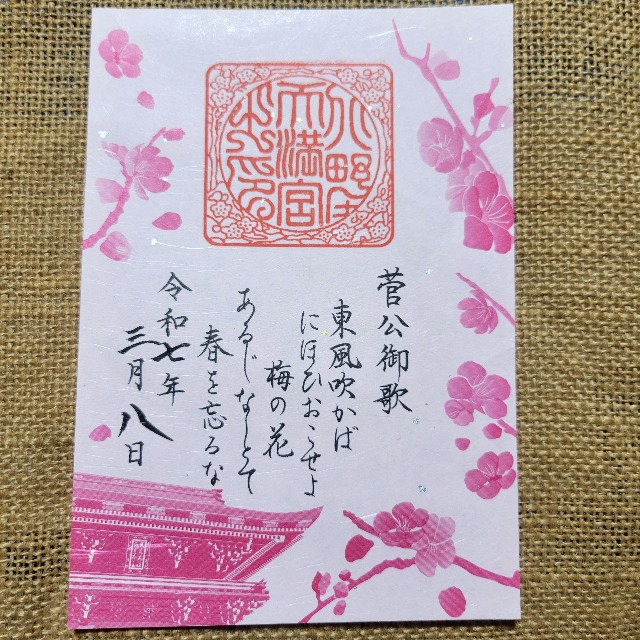 天満宮
菅公御歌
東風吹かば
にほひおこせよ
梅の花
あるじなしとて
春を忘るな
令和七年
三月八日